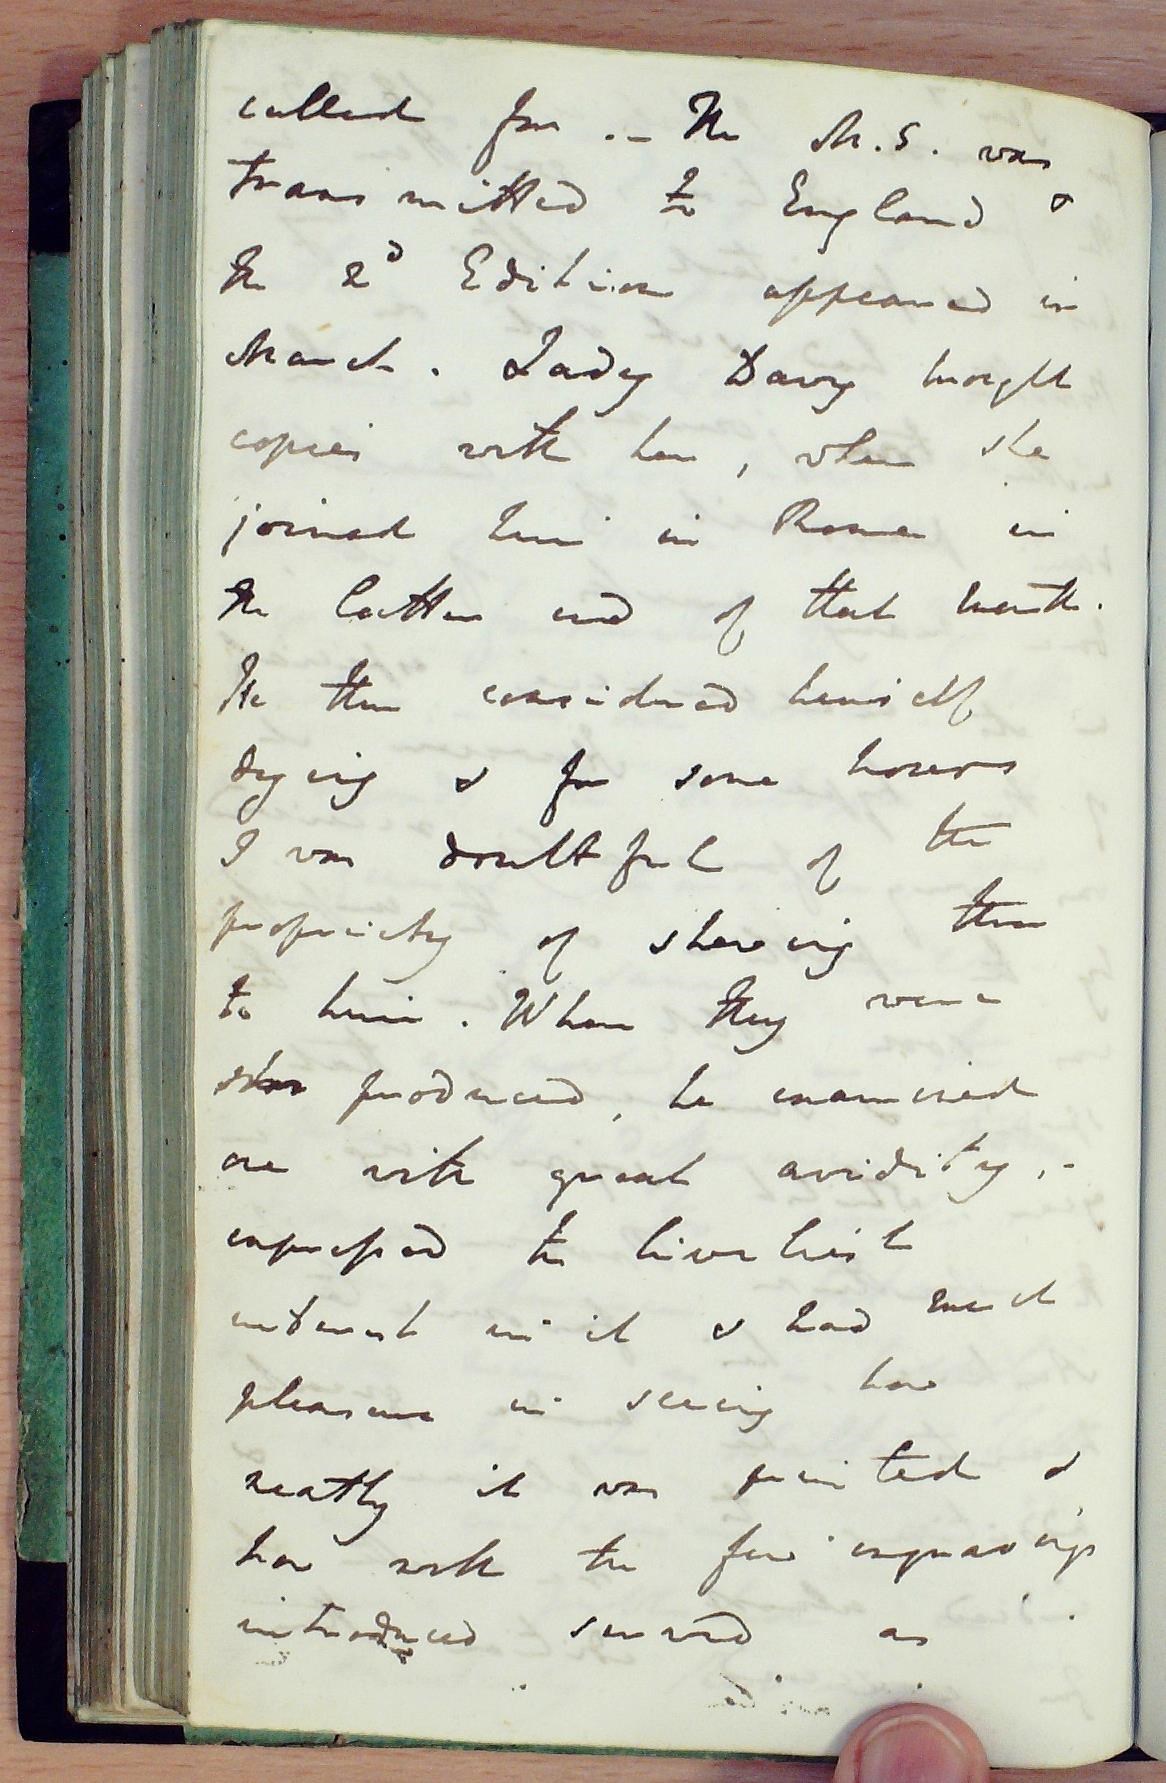 called for .– The M.S. was
transmitted to England &
the 2d Edition appeared in
March. Lady Davy brought
copies with her, when she
joined him in Rome in
the latter end of that month.
He then considered himself
dying & for some hours
I was doubtful of the
propriety of shewing them
to him. When they were
shew produced, he examined
one with great avidity, -
expressed the liveliest
interest in it & had much
pleasure in seeing how
neatly it was printed &
how well the few engravings
introduced served as